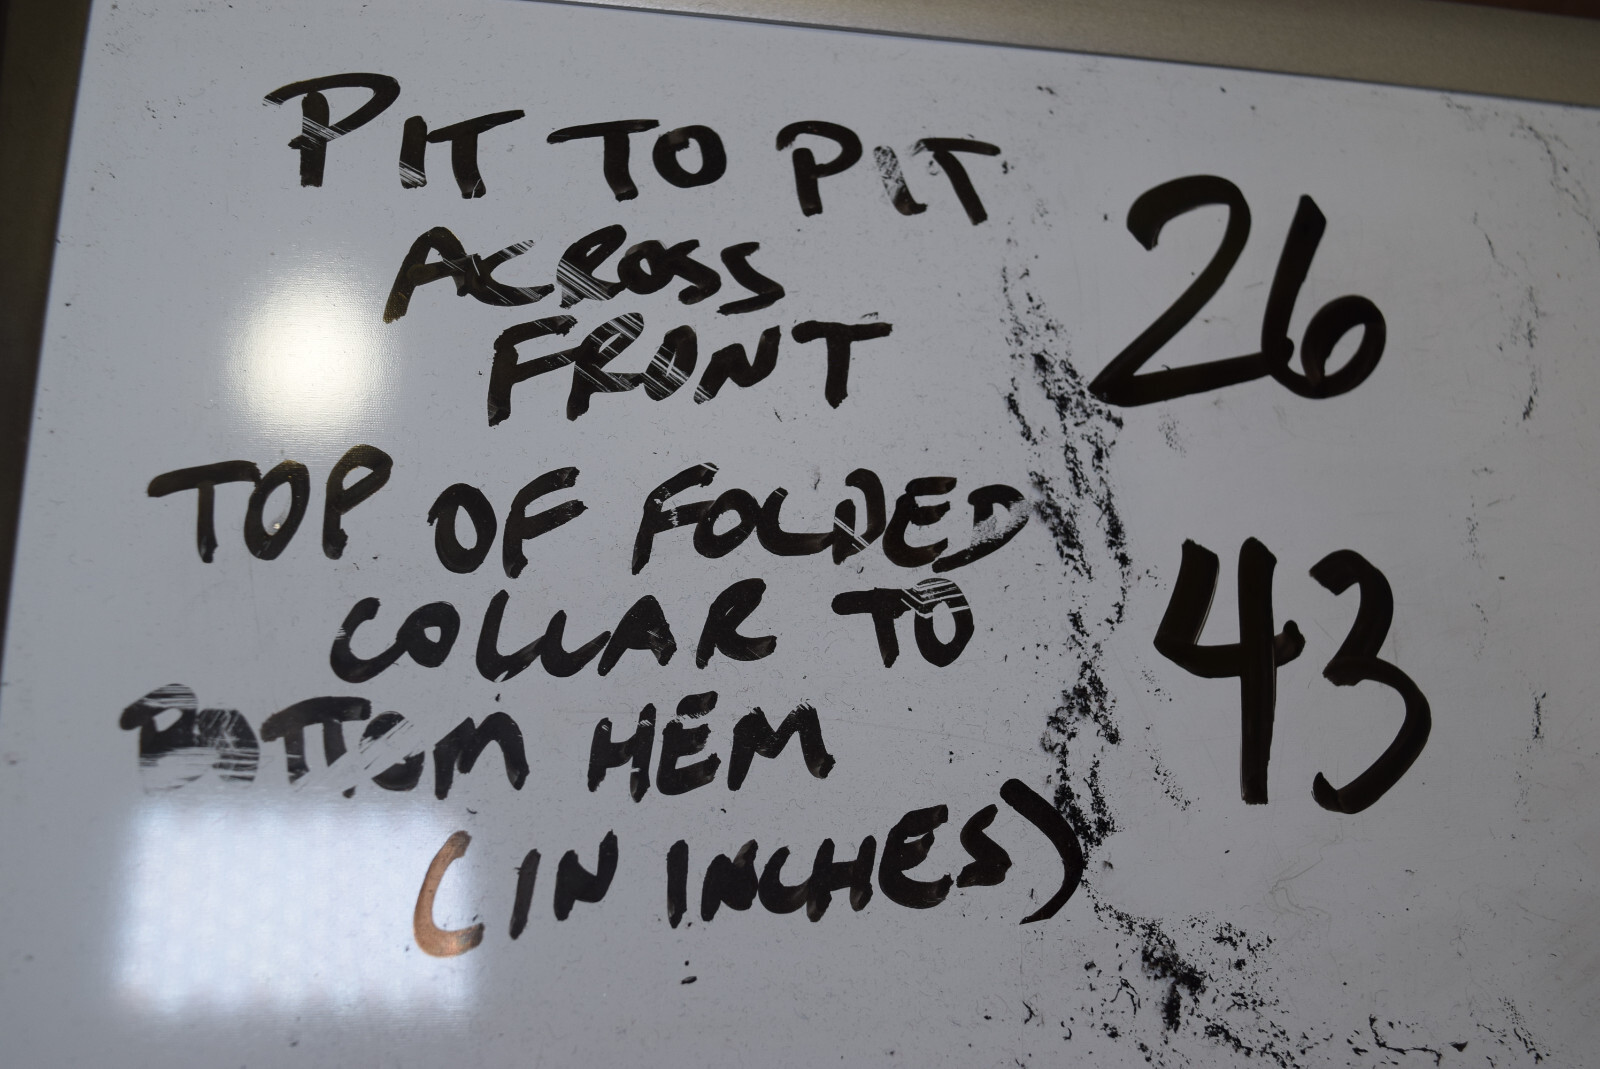 PIT TO PIT
ACROSS
FRONT
26
TOP OF FOLDED
COLLAR TO
BOTTOM HEM
(IN INCHES)
43